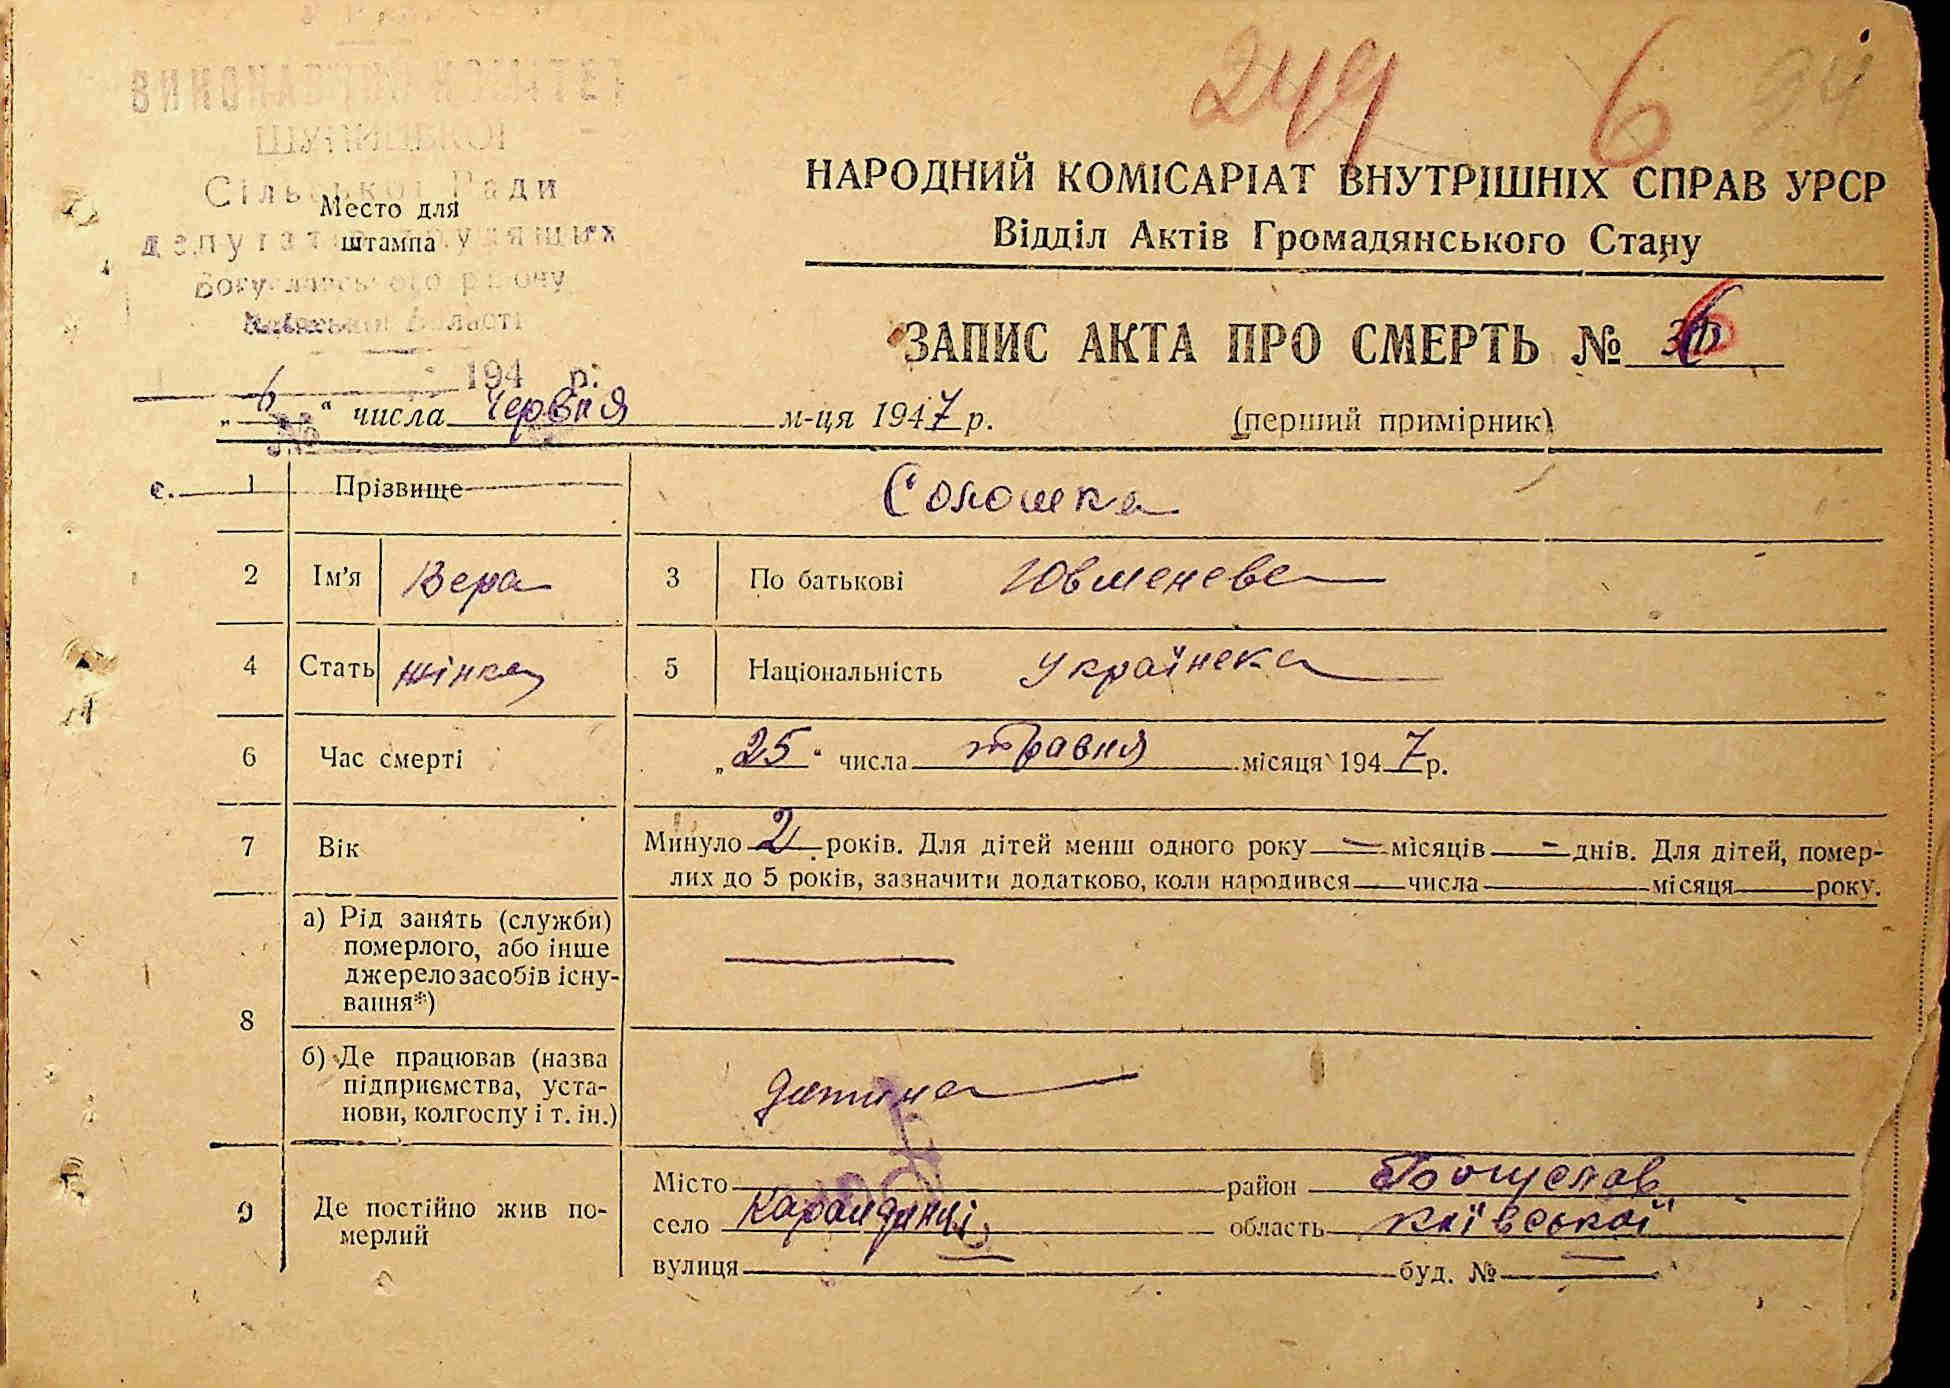 249 6 94
ВИКОНАВЧИЙ КОМІТЕТ
Сільської Ради
депутатів трудящих
Богуславського району
Київської області
194 р.
№
с.
Место для
штампа
НАРОДНИЙ КОМІСАРІАТ ВНУТРІШНІХ СПРАВ УРСР
Відділ Актів Громадянського Стану
ЗАПИС АКТА ПРО СМЕРТЬ № 6
„6“ числа Червня м-ця 1947 р. (перший примірник)
1 Прізвище Соломка
2 Ім'я Вера 3 По батькові Ювменевна
4 Стать жінка 5 Національність Українека
6 Час смерті „25“ числа травня місяця 1947 р.
7 Вік Минуло 2 років. Для дітей менш одного року — місяців — днів. Для дітей, помер-
лих до 5 років, зазначити додатково, коли народився числа місяця року.
8 а) Рід занять (служби)
померлого, або інше
джерело засобів існу-
вання*)
б) Де працював (назва
підприємства, уста-
нови, колгоспу і т. ін.) датина
9 Де постійно жив по-
мерлий
Місто район Богуслав
село Карандинці область Київської
вулиця буд. № —